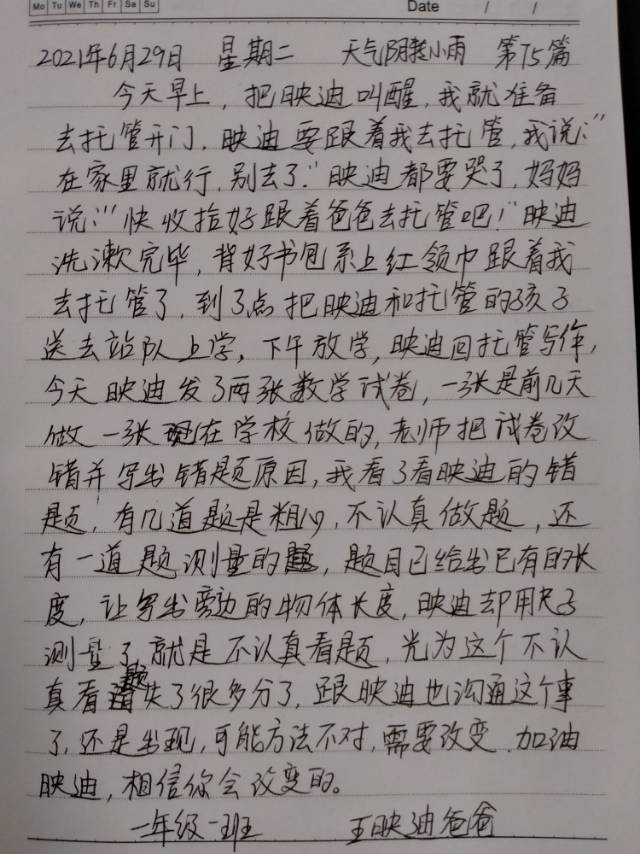 Mo Tu We Th Fr Sa Su
Date / /
2021年6月29日 星期二 天气阴转小雨 第75篇
今天早上，把映迪叫醒，我就准备
去托管开门，映迪要跟着我去托管，我说："
在家里就行，别去了."映迪都要哭了，妈妈
说："快收拾好跟着爸爸去托管吧！"映迪
洗漱完毕，背好书包系上红领巾跟着我
去托管了，到了点把映迪和托管的孩子
送去站队上学，下午放学，映迪回托管写作，
今天映迪发了两张数学试卷，一张是前几天
做一张现在学校做的，老师把试卷改
错并写出错题原因，我看了看映迪的错
题，有几道题是粗心，不认真做题，还
有一道题测量的题，题目已给出已有的长
度，让写出旁边的物体长度，映迪却用尺子
测量了，就是不认真看题，光为这个不认
真看题失了很多分了，跟映迪也沟通这个事
了，还是出现，可能方法不对，需要改变，加油
映迪，相信你会改变的。
一年级一班 王映迪爸爸